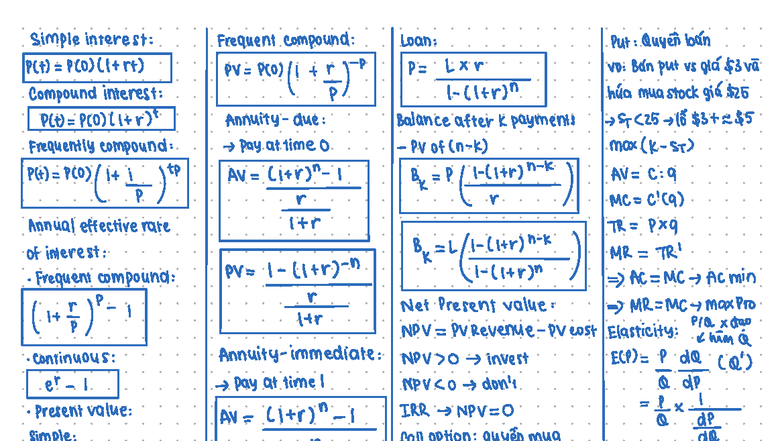 Simple interest:
P(t) = P(0)(1+rt)
Compound interest:
P(t) = P(0)(1+r)^t
Frequently compound:
P(t) = P(0)(1 + i/p)^tp
Annual effective rate
of interest:
· Frequent compound:
(1 + r/p)^p - 1
· Continuous:
e^r - 1
· Present value:
Simple:
Frequent compound:
PV = P(0)(1 + r/p)^-p
Annuity-due:
→ Pay at time 0
AV = ((1+r)^n - 1) / (r/(1+r))
PV = (1-(1+r)^-n) / (r/(1+r))
Annuity-immediate:
→ Pay at time 1
AV = (1+r)^n - 1
Loan:
P = (L x r) / (1-(1+r)^n)
Balance after K payments
- PV of (n-k)
B_K = P ((1-(1+r)^n-k) / r)
B_K = L ((1-(1+r)^n-k) / (1-(1+r)^n))
Net Present value:
NPV = PV Revenue - PV cost
NPV > 0 → invest
NPV < 0 → don't
IRR → NPV = 0
Call option: quyền mua
Put: Quyền bán
VD: Bán put vs giá $3 và
hứa mua stock giá $25
→ S_T < 25 → lỗ $3 + = $5
max(K - S_T)
AV = C:q
MC = C'(q)
TR = P x q
MR = TR'
=> AC = MC → AC min
=> MR = MC → max Pro
Elasticity: P/Q x đạo
hàm Q
E(P) = P/Q dQ/dP (Q')
= P/Q x 1/(dP/dQ)